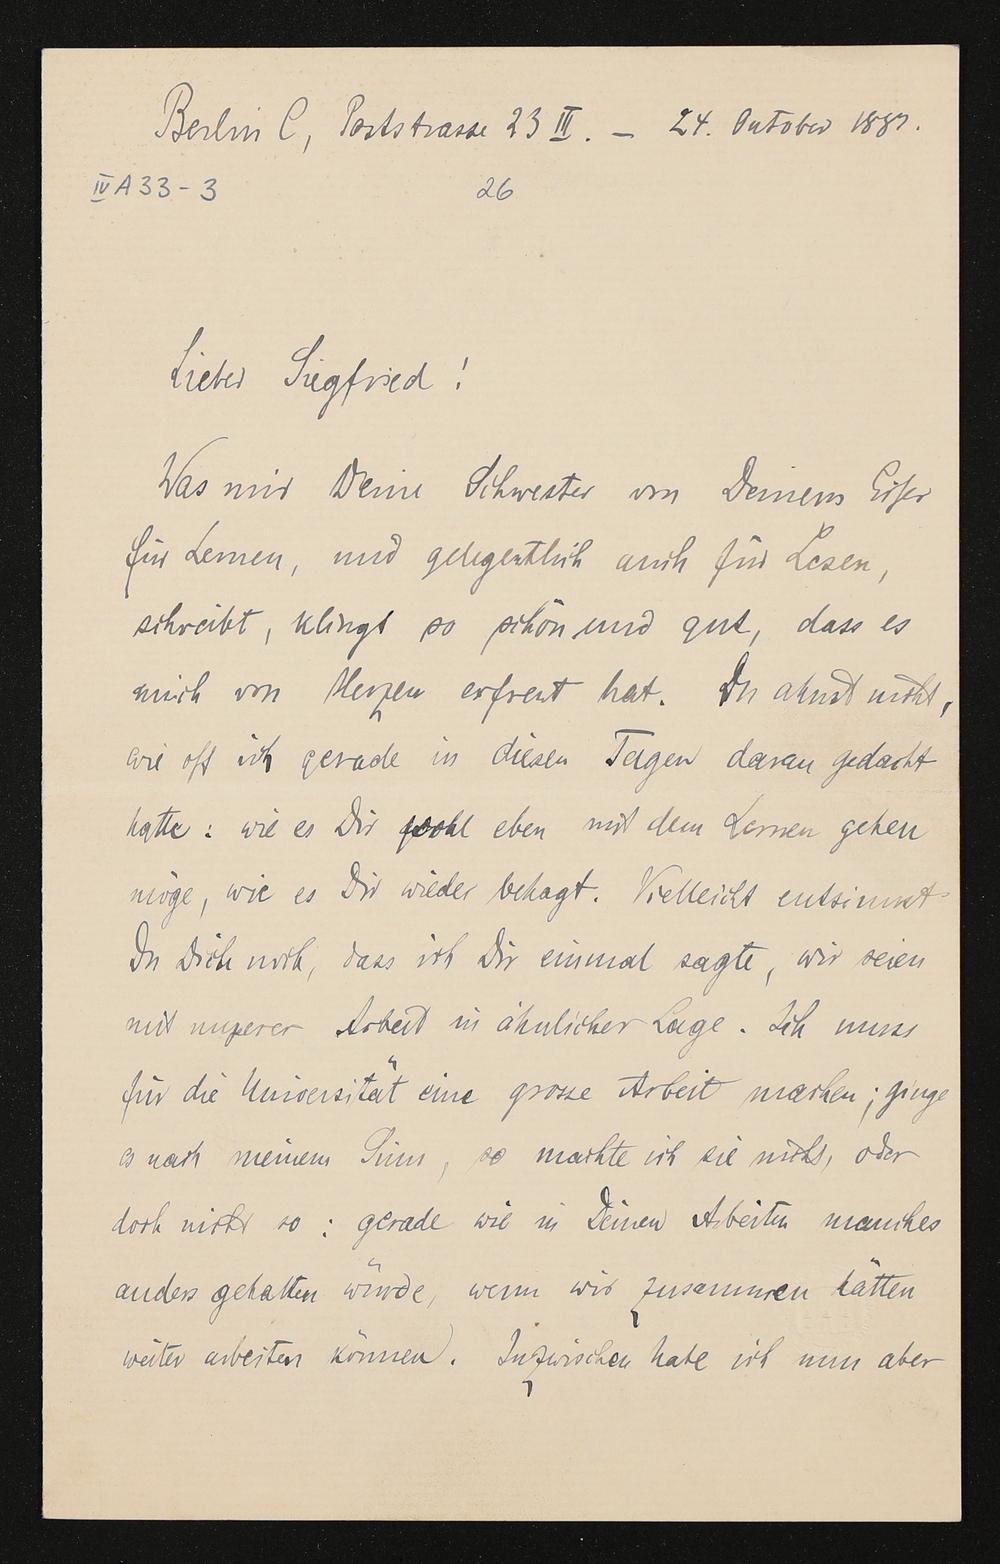 Berlin C, Poststrasse 23 III. – 24. October 1887.
IV A 33 - 3 26
Lieber Siegfried!
Was mir Deine Schwester von Deinem Eifer
für Lernen, und gelegentlich auch für Lesen,
schreibt, klingt so schön und gut, dass es
mich von Herzen erfreut hat. Du ahnst nicht,
wie oft ich gerade in diesen Tagen daran gedacht
hatte: wie es Dir wohl eben mit dem Lernen gehen
möge, wie es Dir wieder behagt. Vielleicht entsinnst
Du Dich noch, dass ich Dir einmal sagte, wir seien
mit unserer Arbeit in ähnlicher Lage. Ich muss
für die Universität eine grosse Arbeit machen; ginge
es nach meinem Sinn, so machte ich sie nicht, oder
doch nicht so: gerade wie in Deinen Arbeiten manches
anders gehalten würde, wenn wir zusammen hätten
weiter arbeiten können. Inzwischen habe ich nun aber